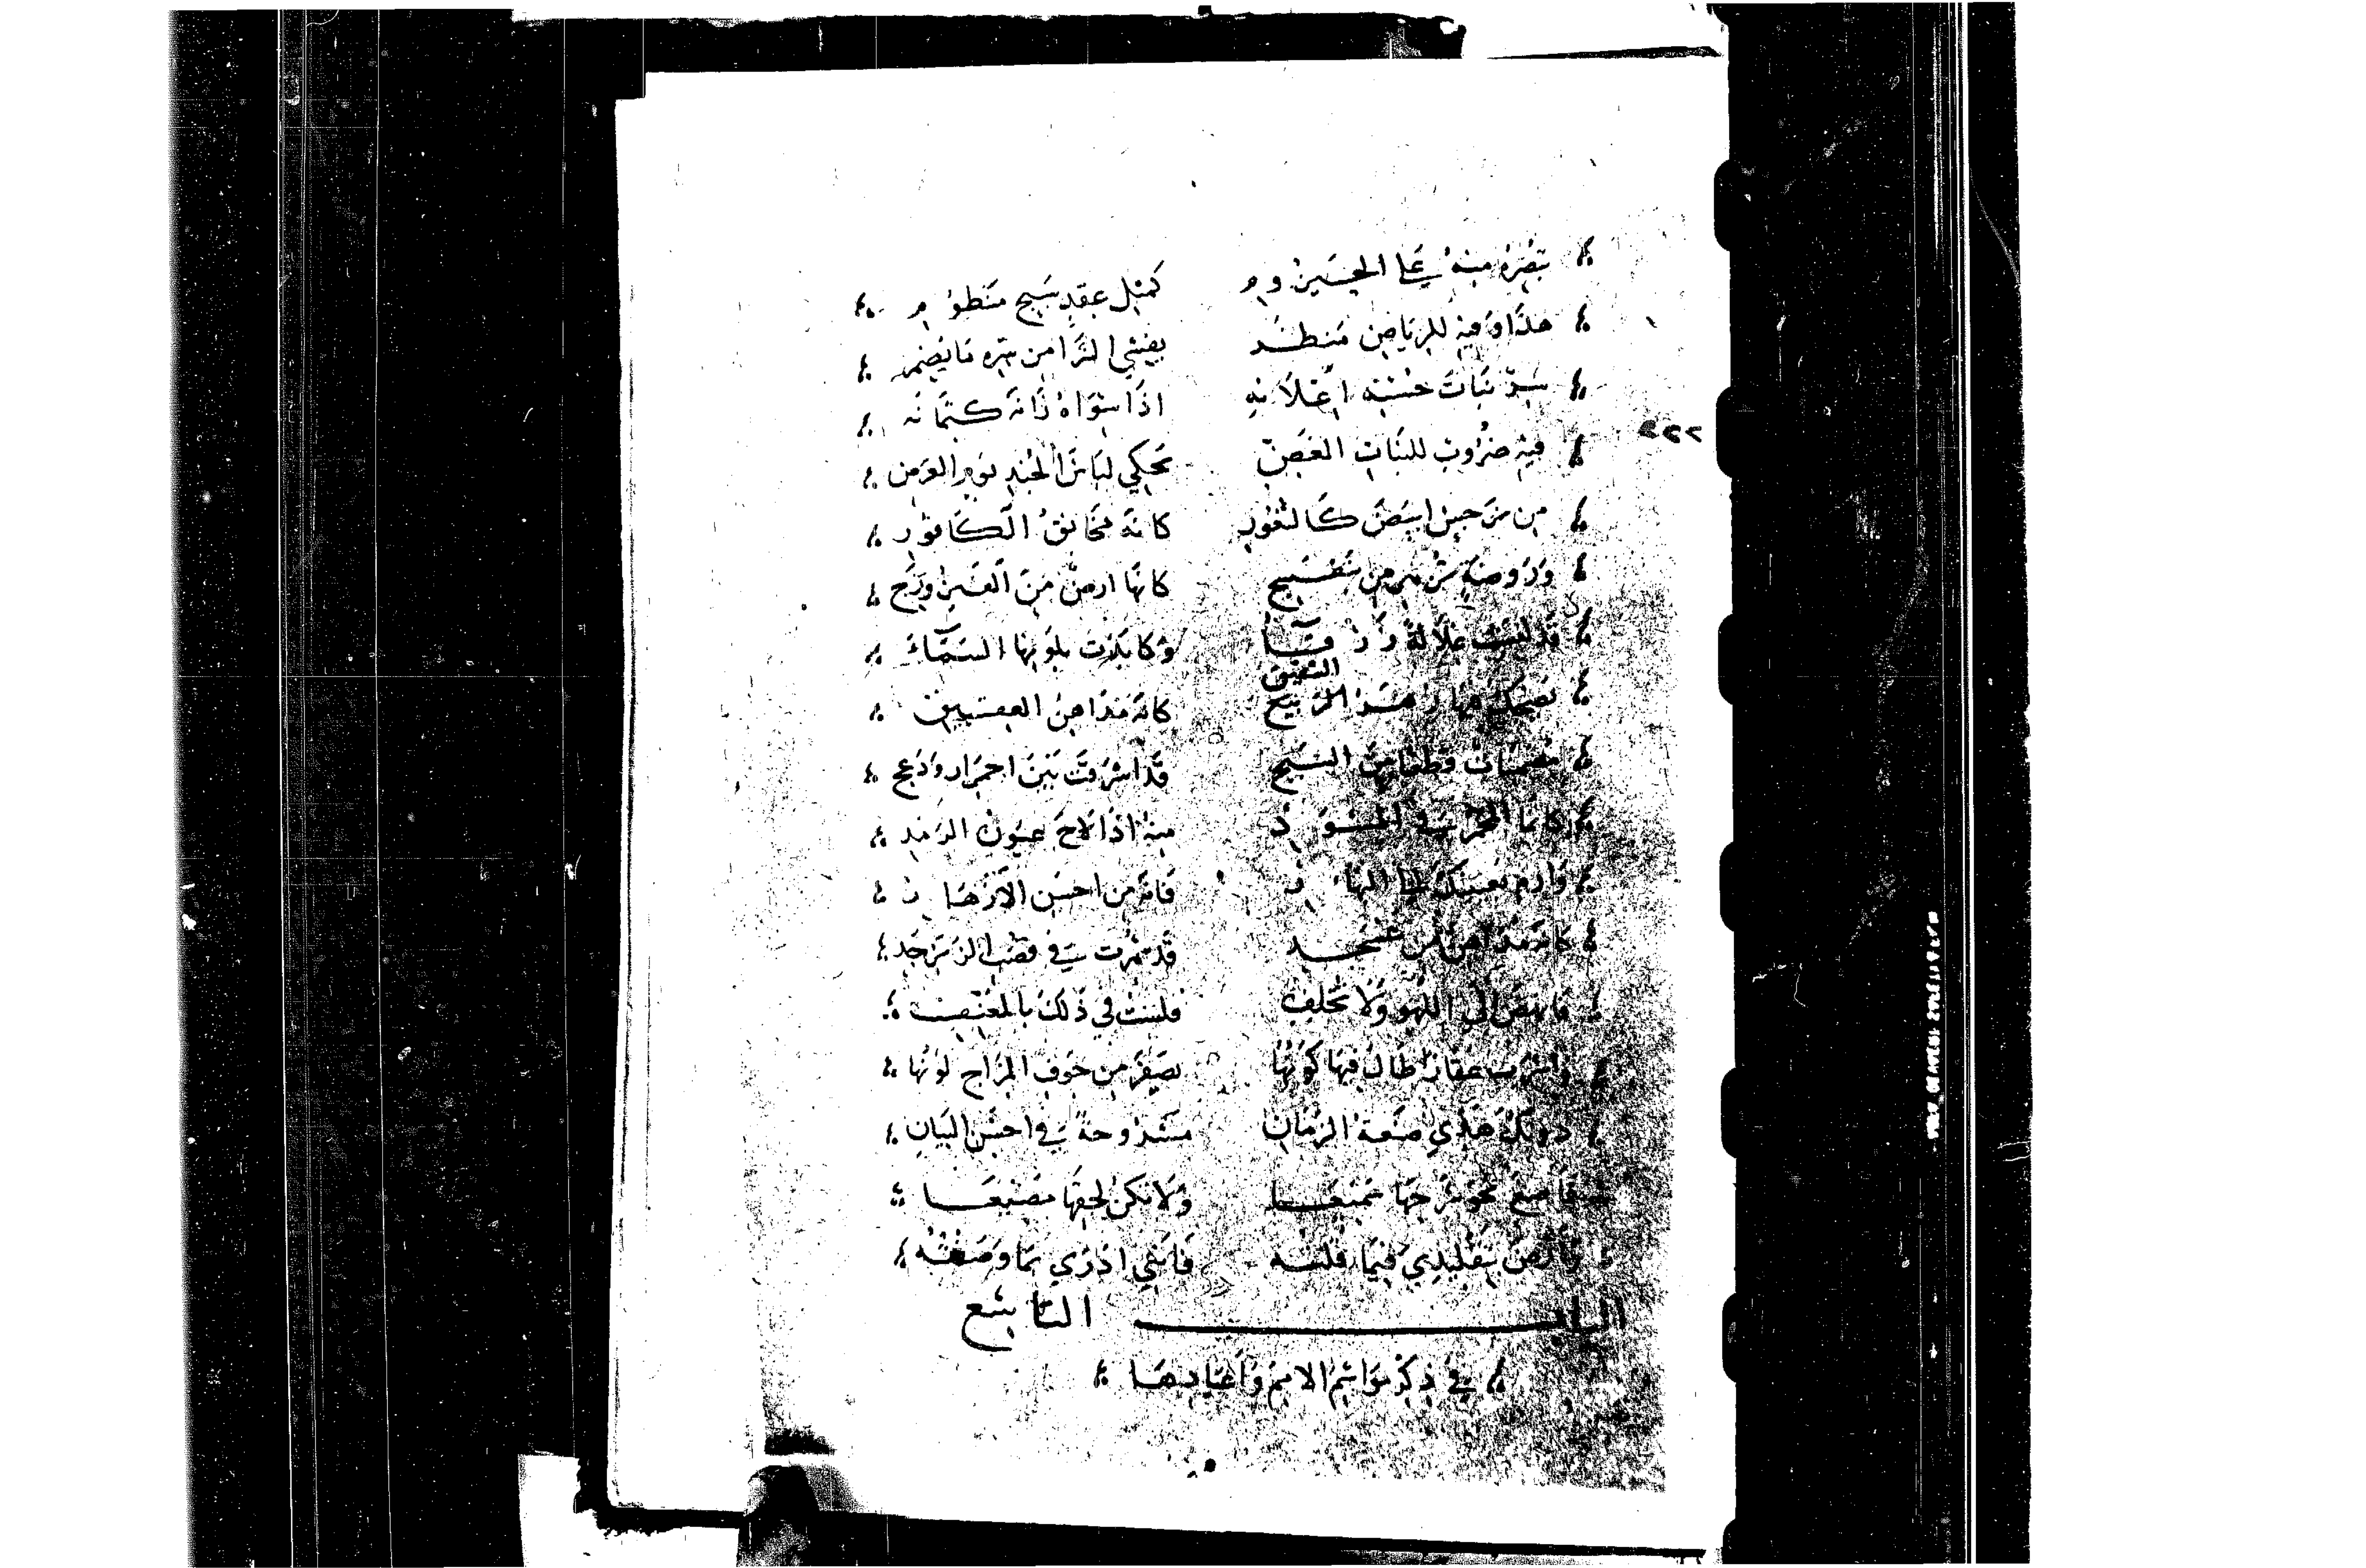 تبصره منه على الجسين وم كمثل عقد سبج منظوم
هذا وفيه للرياض منظر يفشي الثرا من سره ما يضمر
سر نبات حسنه اعلانه اذا سواه زانه كتمانه
فيه ضروب للنبات الغض تحكي لباس الجند يوم العرض
من نرجس ابيض كالثغور كانه مخانق الكافور
وروضة تزهر من بنفسج كانها ارض من الفيروزج
قد لبست غلالة زرقا وكايدت بلونها السماء
يضحك منها زهر الشقيق كانه مداهن العقيق
مضمنات قطعا من السبج قد اشرقت بين احمرار ودعج
كانما المحمر في المسود منه اذا لاح عيون الرمد
وارم بعينيك الى البهار فانه من احسن الازهار
كانه مداهن من عسجد قد سمرت في قضب الزبرجد
فانهض الى اللهو ولا تخلف فلست في ذلك بالمعنف
واشرب عقارا طال فيها كونها يصفر من خوف المزاج لونها
دونك هذي صفة الزمان مشروحة في احسن البيان
فاصغ نحو شرحها سميعا ولا تكن لحقها مضيعا
وارض بتقليدي فيما قلته فانني ادري بما وصفته
الباب التاسع
في ذكر مواسم الامم واعيادها